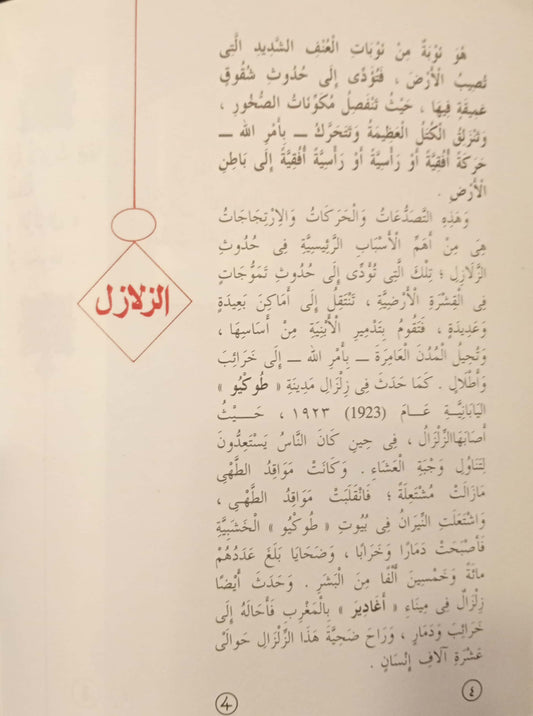 هُوَ نَوْبَةٌ مِنْ نَوْبَاتِ الْعُنْفِ الشَّدِيدِ الَّتِى
تُصِيبُ الْأَرْضَ ، فَتُؤَدِّى إِلَى حُدُوثِ شُقُوقٍ
عَمِيقَةٍ فِيهَا ، حَيْثُ تَنْفَصِلُ مُكَوِّنَاتُ الصُّخُورِ ،
وَتَنْزَلِقُ الْكُتَلُ الْعَظِيمَةُ وَتَتَحَرَّكُ ــ بِأَمْرِ اللهِ ــ
حَرَكَةً أُفُقِيَّةً أَوْ رَأْسِيَّةً أَوْ رَأْسِيَّةً أُفُقِيَّةً إِلَى بَاطِنِ
الْأَرْضِ .
وَهَذِهِ التَّصَدُّعَاتُ وَالْحَرَكَاتُ وَالِارْتِجَاجَاتُ
هِىَ مِنْ أَهَمِّ الْأَسْبَابِ الرَّئِيسِيَّةِ فِى حُدُوثِ
الزَّلَازِلِ ؛ تِلْكَ الَّتِى تُؤَدِّى إِلَى حُدُوثِ تَمَوُّجَاتٍ
فِى الْقِشْرَةِ الْأَرْضِيَّةِ ، تَنْتَقِلُ إِلَى أَمَاكِنَ بَعِيدَةٍ
وَعَدِيدَةٍ ، فَتَقُومُ بِتَدْمِيرِ الْأَبْنِيَةِ مِنْ أَسَاسِهَا ،
وَتُحِيلُ الْمُدُنَ الْعَامِرَةَ ــ بِأَمْرِ اللهِ ــ إِلَى خَرَائِبَ
وَأَطْلَالٍ . كَمَا حَدَثَ فِى زِلْزَالِ مَدِينَةِ « طُوكْيُو »
الْيَابَانِيَّةِ عَـامَ (1923) ١٩٢٣ ، حَـيْـثُ
أَصَابَهَاالزِّلْزَالُ ، فِى حِينِ كَانَ النَّاسُ يَسْتَعِدُّونَ
لِتَنَاوُلِ وَجْبَةِ الْعَشَاءِ . وَكَانَتْ مَوَاقِدُ الطَّهْىِ
مَازَالَتْ مُشْتَعِلَةً ؛ فَانْقَلَبَتْ مَوَاقِدُ الطَّهْـىِ ،
وَاشْتَعَلَتِ النِّيرَانُ فِى بُيُوتِ « طُوكْيُو » الْخَشَبِيَّةِ
فَأَصْبَحَتْ دَمَارًا وَخَرَابًا ، وَضَحَايَا بَلَغَ عَدَدُهُمْ
مِائَةً وَخَمْسِينَ أَلْفًا مِنَ الْبَشَرِ . وَحَدَثَ أَيْضًا
زِلْزَالٌ فِى مِينَاءِ « أَغَادِيرَ » بِالْمَغْرِبِ فَأَحَالَهُ إِلَى
خَرَائِبَ وَدَمَارٍ ، وَرَاحَ ضَحِيَّةَ هَذَا الزِّلْزَالِ حَوَالَىْ
عَشْرَةِ آلَافِ إِنْسَانٍ .
الزلازل
٤
4